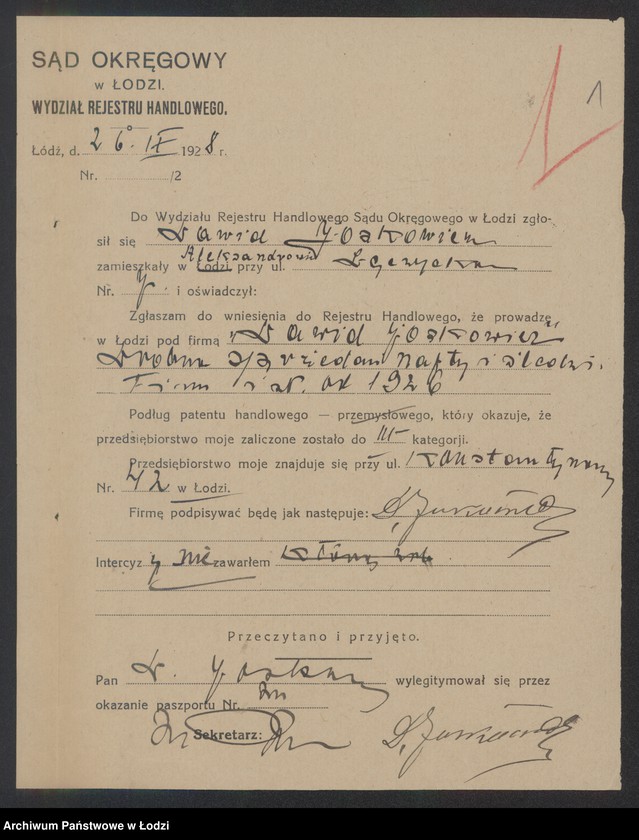 SĄD OKRĘGOWY
w ŁODZI.
WYDZIAŁ REJESTRU HANDLOWEGO.
1
Łódź, d. 26. IX 1928 r.
Nr. /2
Do Wydziału Rejestru Handlowego Sądu Okręgowego w Łodzi zgło-
sił się Dawid Joskowicz
Aleksandrowie
zamieszkały w Łodzi przy ul. Łęczycka
Nr. 7. i oświadczył:
Zgłaszam do wniesienia do Rejestru Handlowego, że prowadzę
w Łodzi pod firmą "Dawid Joskowicz"
Drobna sprzedaż nafty i śledzi.
Firma ist. od 1926
Podług patentu handlowego — przemysłowego, który okazuje, że
przedsiębiorstwo moje zaliczone zostało do III kategorji.
Przedsiębiorstwo moje znajduje się przy ul. Konstantynowska
Nr. 42 w Łodzi.
Firmę podpisywać będę jak następuje:
Intercyzy nie zawarłem
Przeczytano i przyjęto.
Pan D. Joskowicz wylegitymował się przez
okazanie paszportu Nr.
Sekretarz:
Archiwum Państwowe w Łodzi